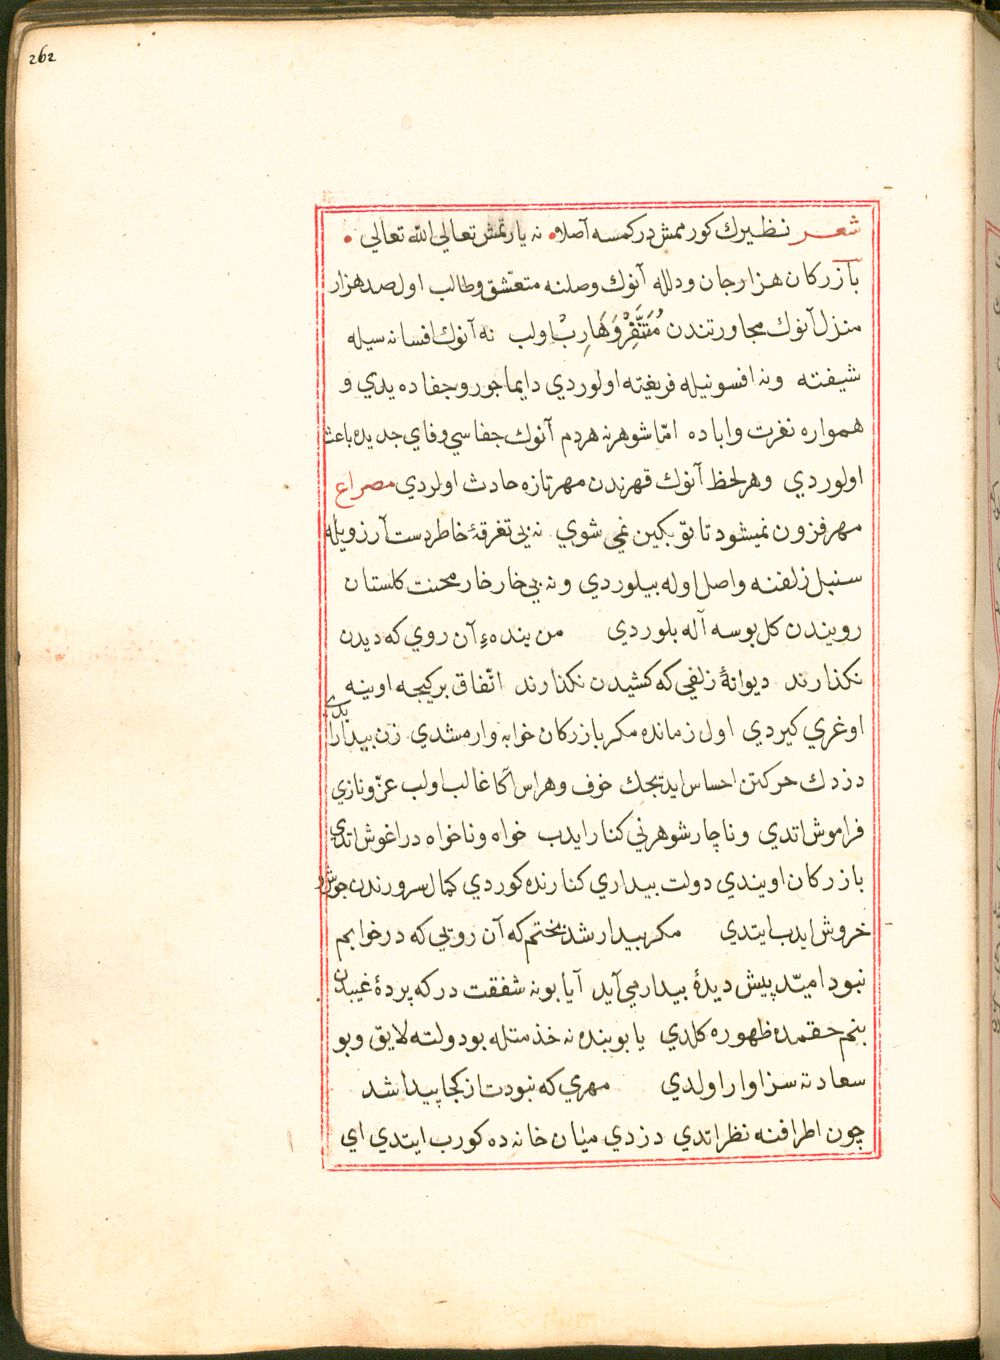 262
شعر نظيرك كورممش در كمسه آصلا • نه يارتمش تعالي الله تعالي •
بآزركان هزار جان ودلله آنوك وصلنه متعشّق وطالب اول صد هزار
منزل آنوك مجاورتندن مُتَنَّفِرْ وَهَارِبْ اولب نه آنوك افسانه سيله
شيفته ونه افسونيله فريفته اولوردي دايما جور وجفاده يدي و
همواره نفرت واباده امّا شوهرنه هردم آنوك جفاسي وفاي جديده باعث
اولوردي وهر لحظ آنوك قهرندن مهر تازه حادث اولردي مصراع
مهر فزون نميشود تا تو بكين نمي شوي نه بي تفرقهٔ خاطر دست آرزويله
سنبل زلفنه واصل اوله بيلوردي ونه بي خار خار محنت كلستان
رويندن كل بوسه آله بلوردي من بندهٔ آن روي كه ديدن
نكذارند ديوانهٔ زلفي كه كشيدن نكذارند اتّفاق بر كيجه اوينه
اوغري كيردي اول زمانده مكر بازركان خوابه وارمشدي زن بيدارا يدي
دزدك حركتن احساس ايديجك خوف وهراس آكا غالب اولب عزّ ونازي
فراموش اتدي وناچار شوهرني كنار ايدب خواه وناخواه دراغوش اتدي
بازركان اويندي دولت بيداري كنارنده كوردي كمال سرورندن جوش و
خروش ايدب ايتدي مكر بيدار شد بختم كه آن رويي كه در خوابم
نبود اميّد پيش ديدهٔ بيدار مي آيد آيا بو نه شفقت در كه پردهٔ غيبدن
بنم حقمده ظهوره كلدي يا بو بنده نه خذمتله بو دولته لايق وبو
سعادته سزاوار اولدي مهري كه نبودت از كجا پيدا شد
چون اطرافنه نظر اتدي دزدي ميٰان خانه ده كورب ايتدي اي